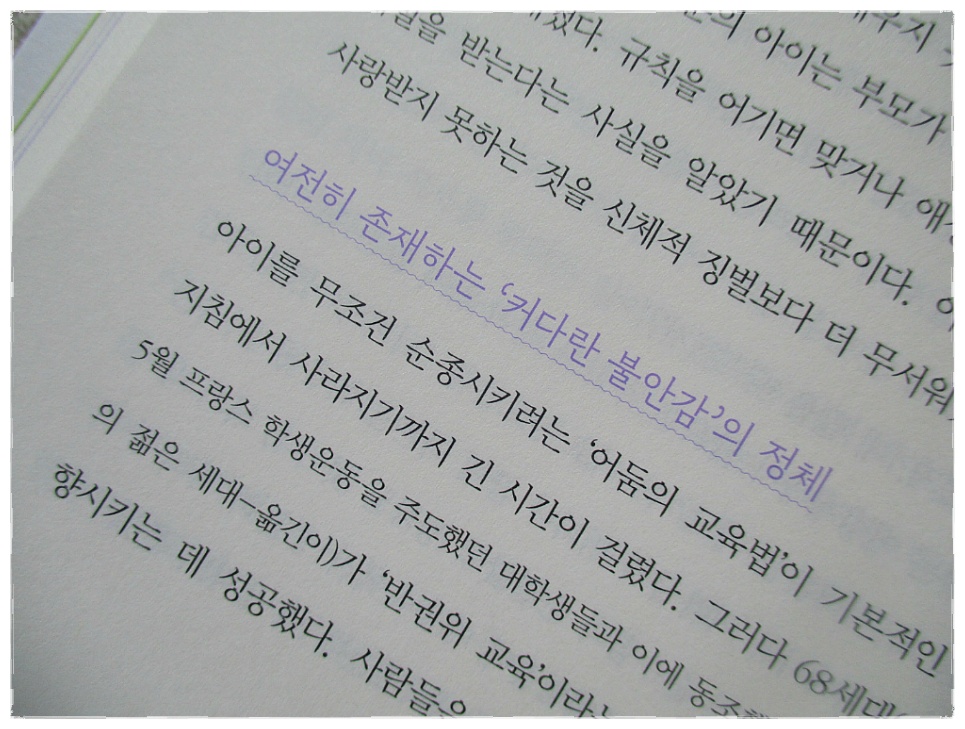 아이는 부모가
규칙을 어기면 맞거나
받는다는 사실을 알았기 때문이다.
사랑받지 못하는 것을 신체적 징벌보다 더 무서워
여전히 존재하는 ‘커다란 불안감’의 정체
아이를 무조건 순종시키려는 ‘어둠의 교육법’이 기본적인
지침에서 사라지기까지 긴 시간이 걸렸다. 그러다 68세대(
5월 프랑스 학생운동을 주도했던 대학생들과 이에
의 젊은 세대–옮긴이)가 ‘반권위 교육’이라는
향시키는 데 성공했다. 사람들은